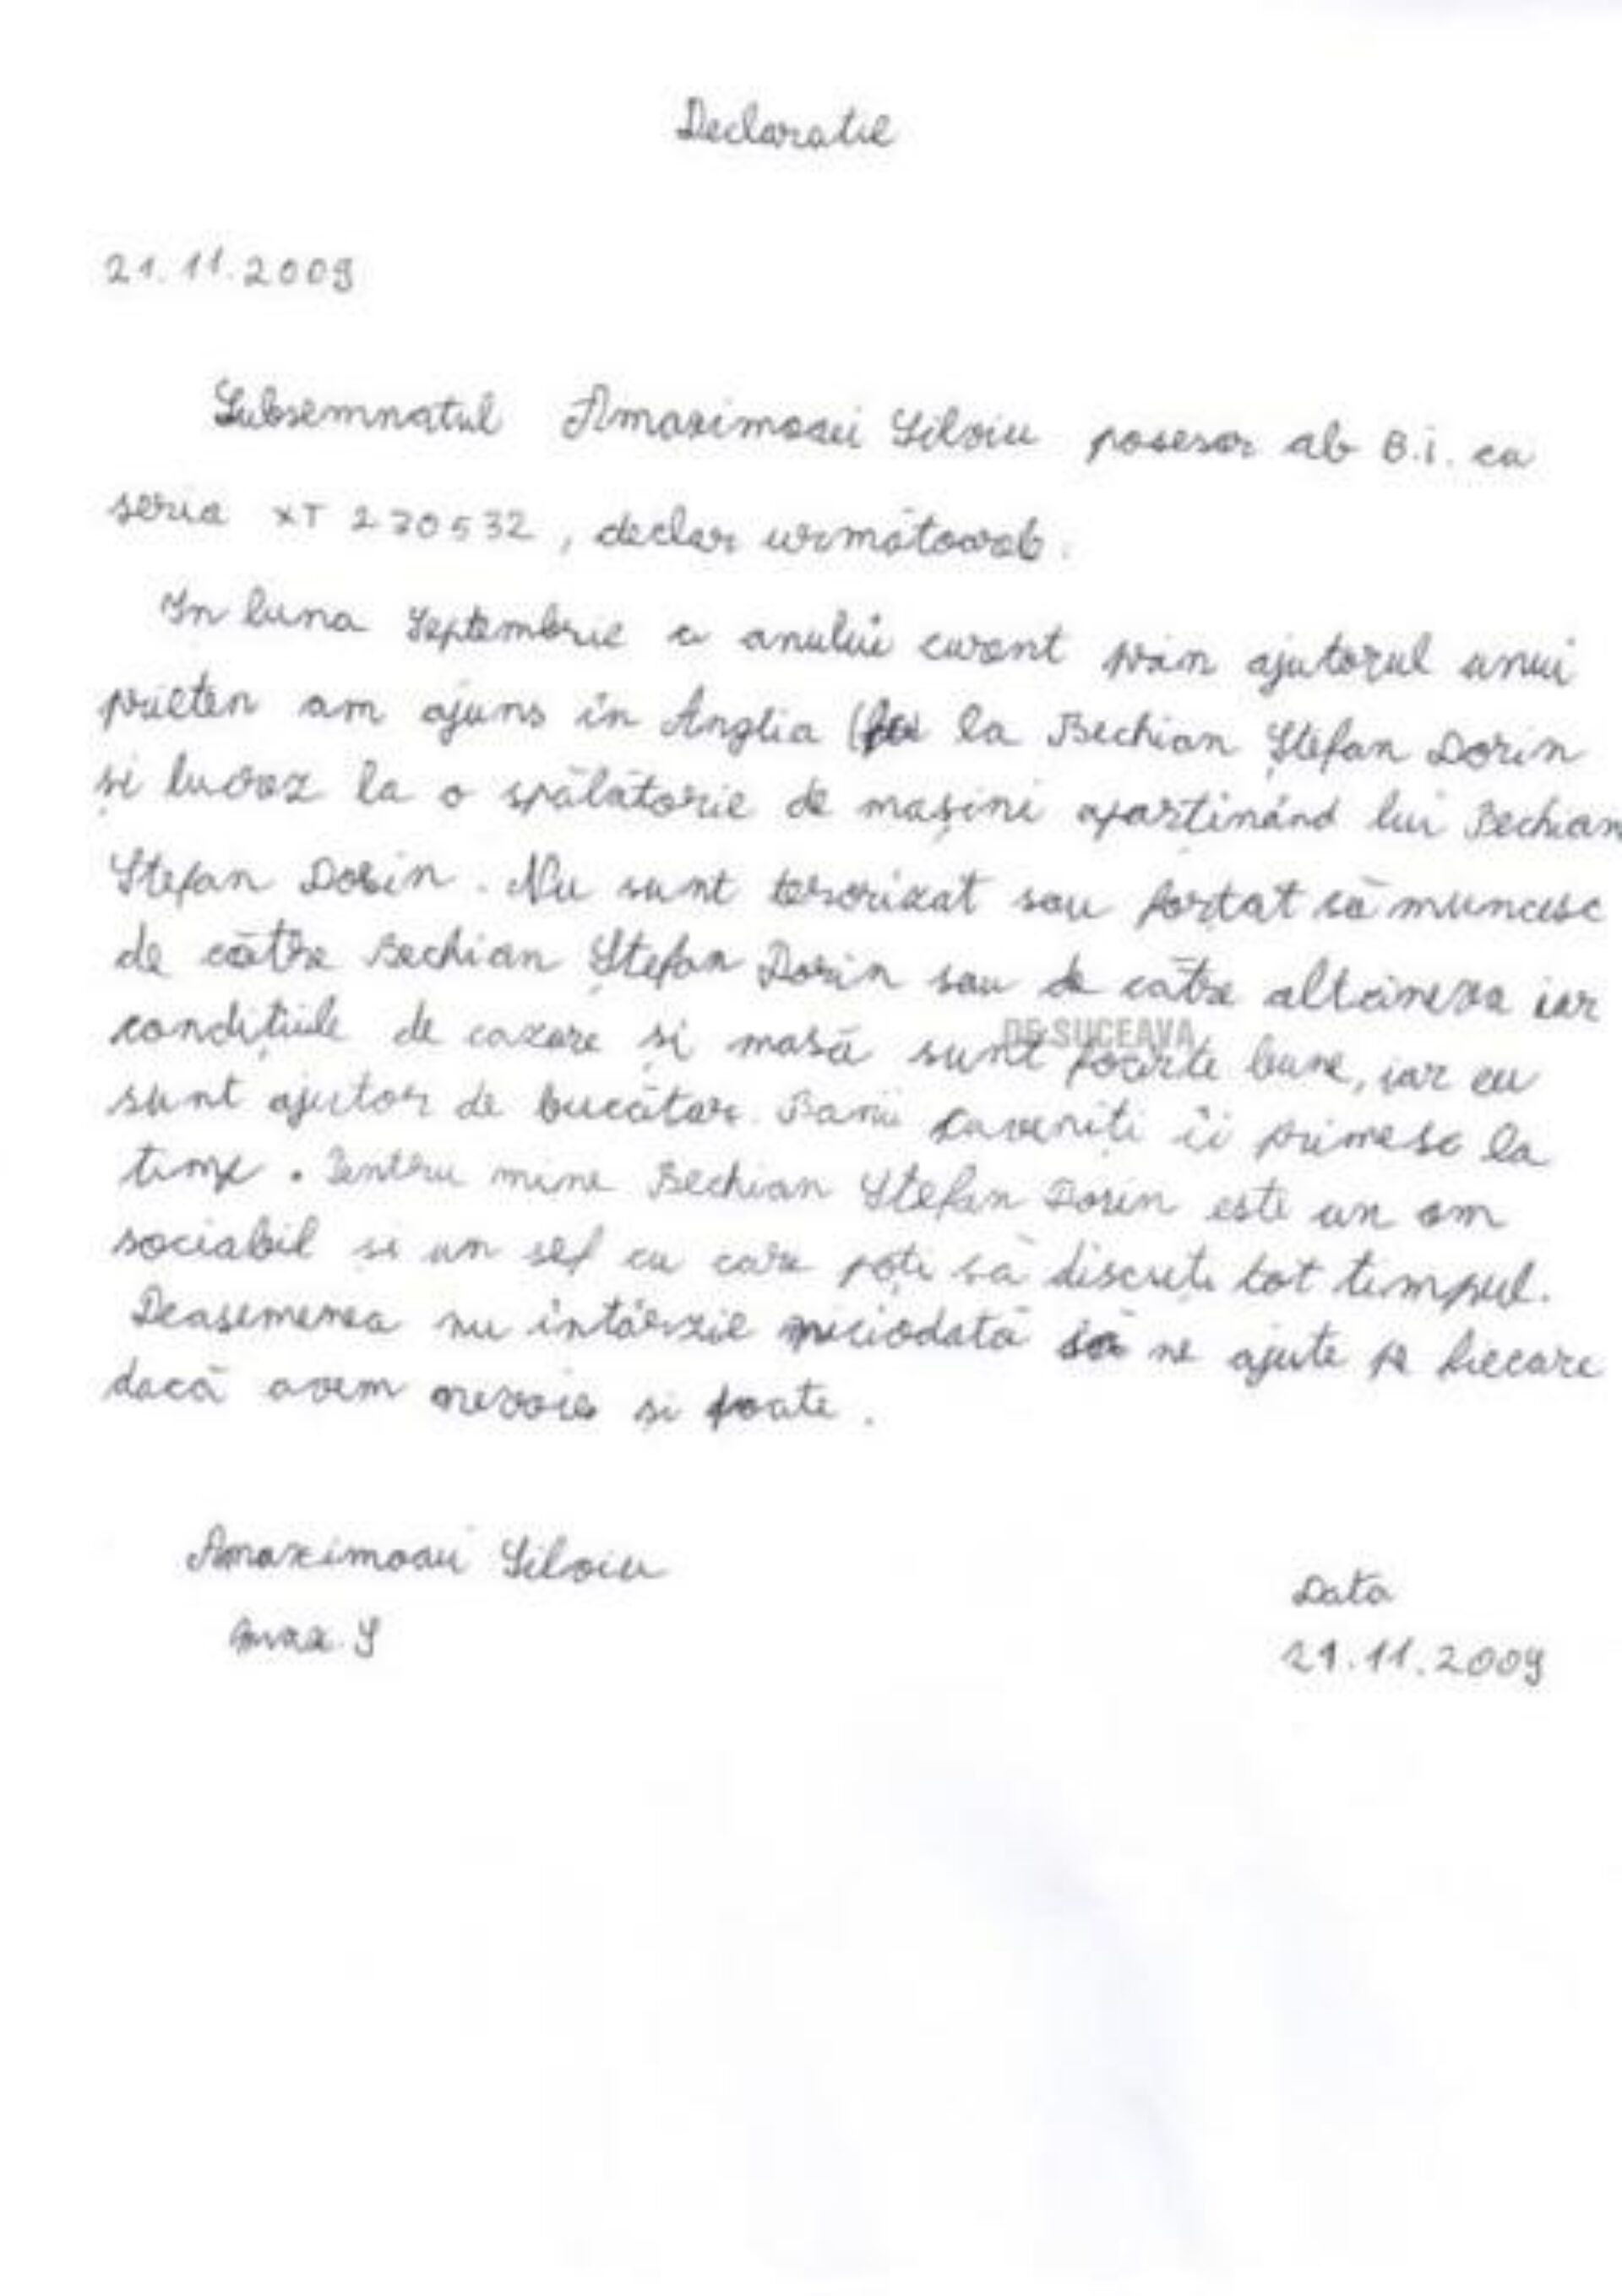 Declaratie
21.11.2009
Subsemnatul Amaximoaei Silviu posesor al B.i. cu
seria XT 270532, declar următoarele:
In luna Septembrie a anului curent prin ajutorul unui
prieten am ajuns în Anglia ( la Bechian Ștefan Dorin
și lucrez la o spălătorie de mașini aparținând lui Bechian
Ștefan Dorin. Nu sunt terorizat sau forțat să muncesc
de către Bechian Ștefan Dorin sau de către altcineva iar
condițiile de cazare și masă sunt foarte bune, iar eu
DE SUCEAVA
sunt ajutor de bucătar. Banii cuveniți îi primesc la
timp. Pentru mine Bechian Ștefan Dorin este un om
sociabil si un sef cu care poți să discuți tot timpul.
Deasemenea nu întârzie niciodată să ne ajute pe fiecare
dacă avem nevoie si poate.
Amaximoaei Silviu
Amax. S
Data
21.11.2009